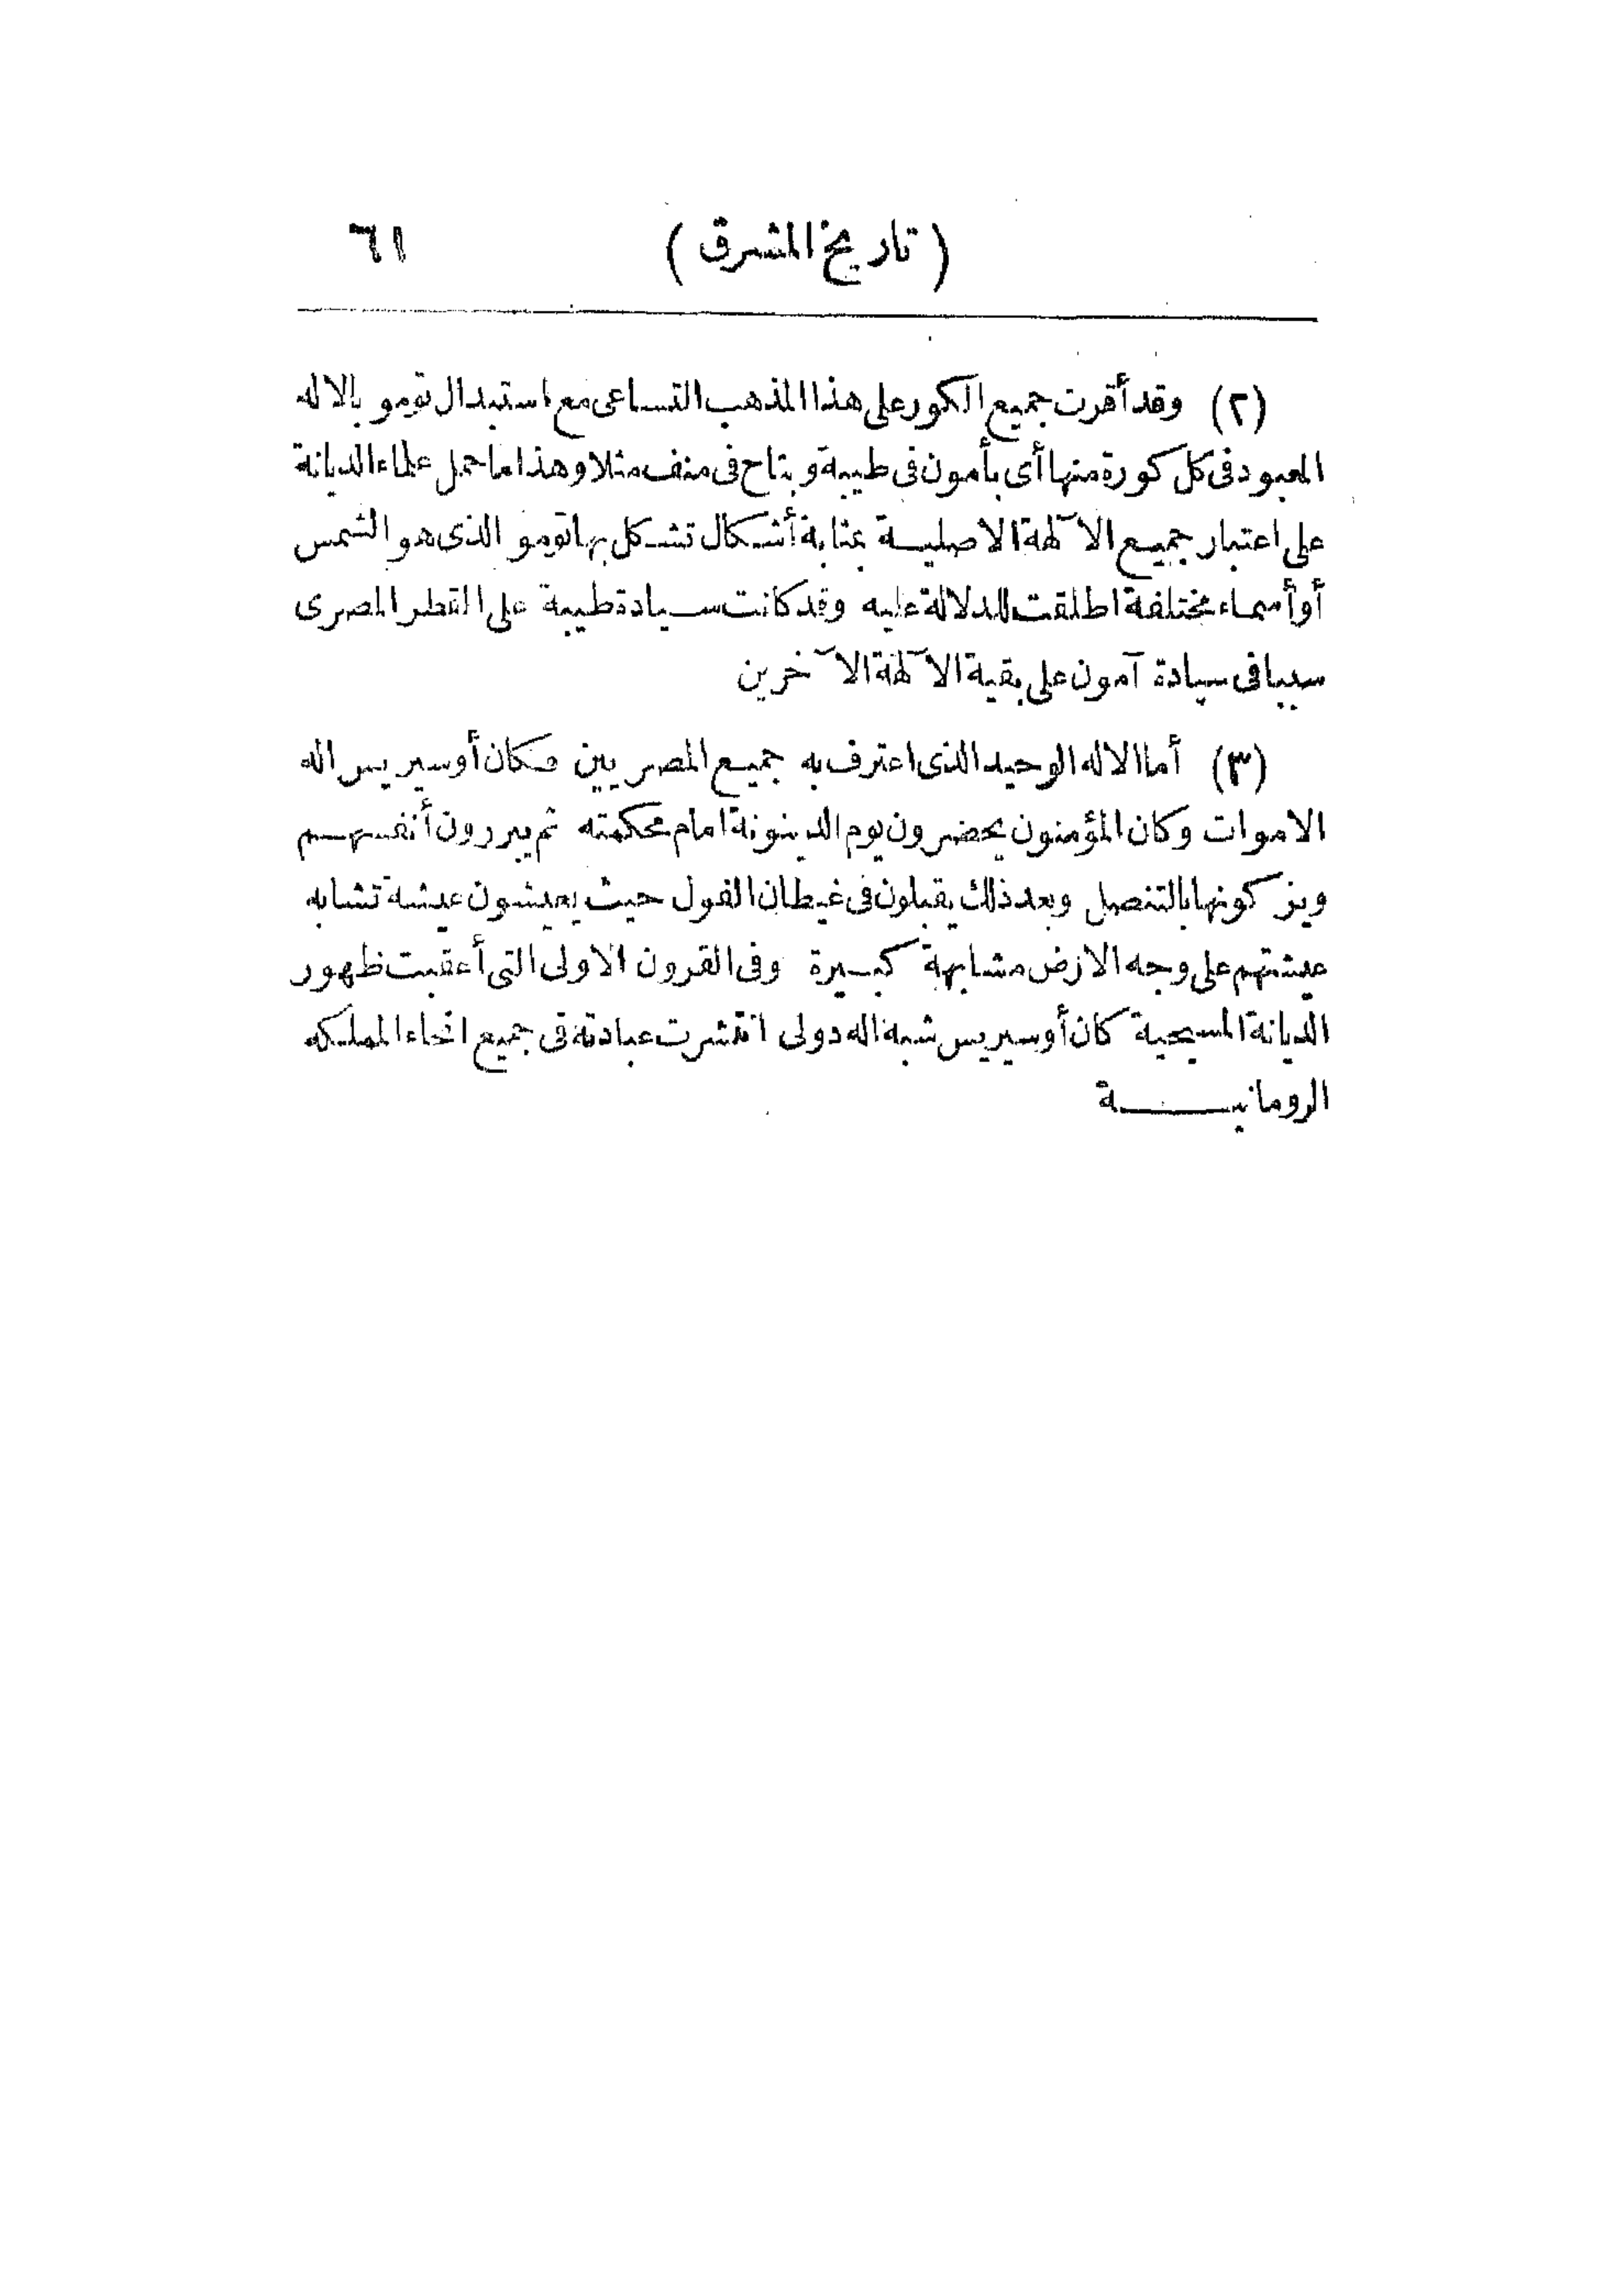 ( تاريخ المشرق ) ٦١
(٢) وقد أقرت جميع الكور على هذا المذهب التساعى مع استبدال تومو بالاله
المعبود فى كل كورة منها أى بأمون فى طيبة و بتاح فى منف مثلا وهذا ما حمل علماء الديانة
على اعتبار جميع الآلهة الاصلية بمثابة أشكال تشكل بها تومو الذى هو الشمس
أو أسماء مختلفة اطلقت للدلالة عليه وقد كانت سيادة طيبة على القطر المصرى
سببا فى سيادة آمون على بقية الآلهة الآخرين
(٣) أما الاله الوحيد الذى اعترف به جميع المصريين فكان أوسيريس اله
الاموات وكان المؤمنون يحضرون يوم الدينونة امام محكمته ثم يبررون أنفسهم
ويزكونها بالتنصل وبعد ذلك يقبلون فى غيطان الفول حيث يعيشون عيشة تشابه
عيشتهم على وجه الارض مشابهة كبيرة وفى القرون الاولى التى أعقبت ظهور
الديانة المسيحية كان أوسيريس شبه اله دولى انتشرت عبادته فى جميع انحاء المملكه
الرومانية